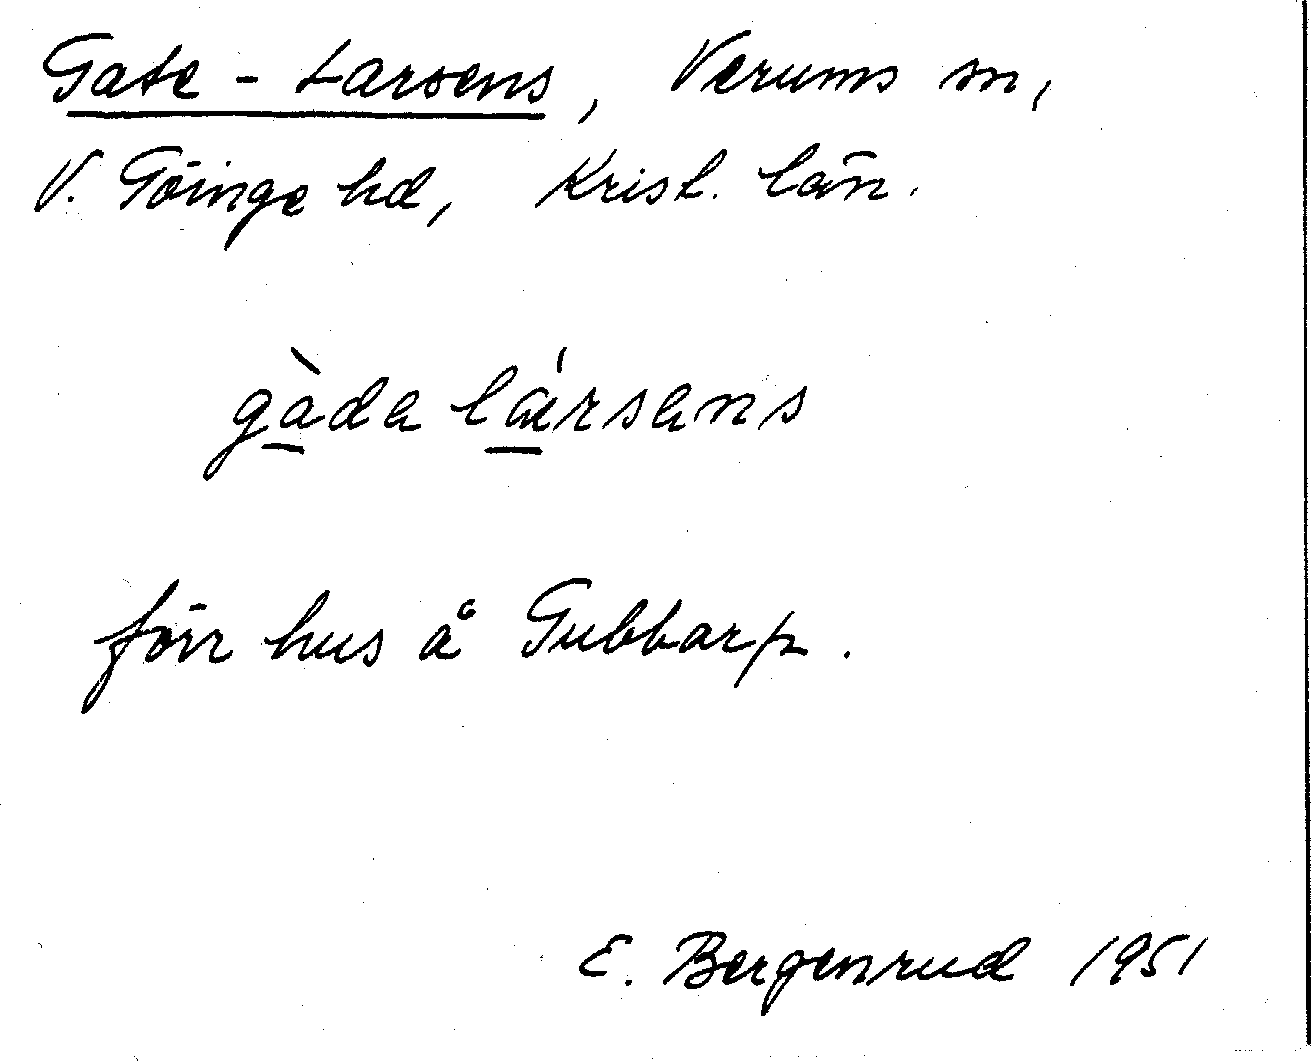 Gate - Larsens, Verums sn,
V. Göinge hd, Krist. län.
gàda lársans
förr hus å Gubbarp.
E. Bergenrud 1951